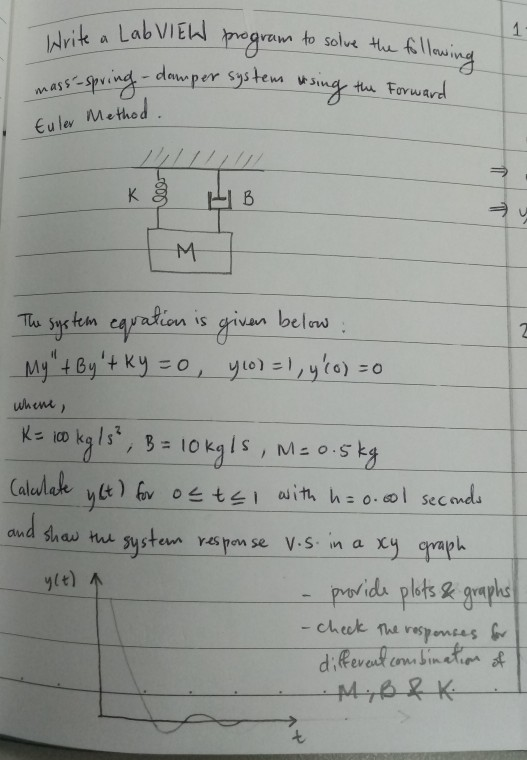 Write a LabVIEW program to solve the following
mass-spring-damper system using the Forward
Euler Method.
K
B
M
The system equation is given below:
My" + By' + Ky = 0, y(0) = 1, y'(0) = 0
where,
K = 100 kg/s², B = 10 kg/s, M = 0.5 kg
Calculate y(t) for 0 ≤ t ≤ 1 with h = 0.001 seconds
and show the system response v.s. in a xy graph
y(t)
- provide plots & graphs
- check the responses for
different combination of
M, B & K.
t
1
⇒
⇒ y
2